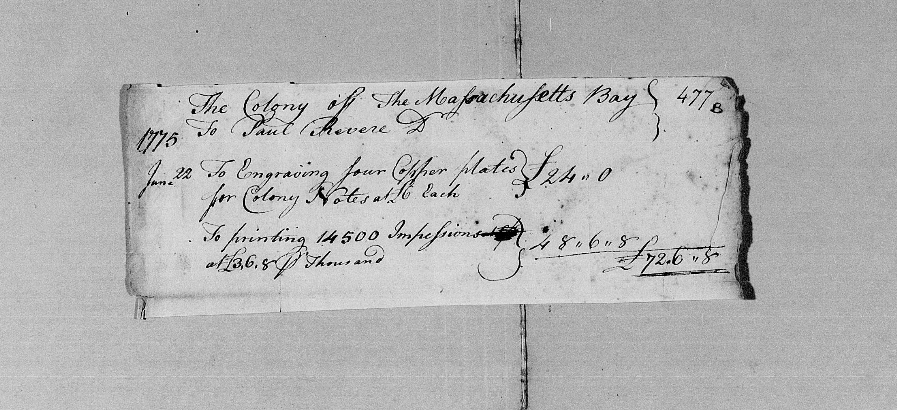 The Colony off The Massachusetts Bay } 477
To Paul Revere Dr
1775
June 22 To Engraving four Copper plates } £24 " 0
for Colony Notes at £6 Each
To printing 14500 Impressions } 48 " 6 " 8
at £3.6.8 P Thousand £72 " 6 " 8